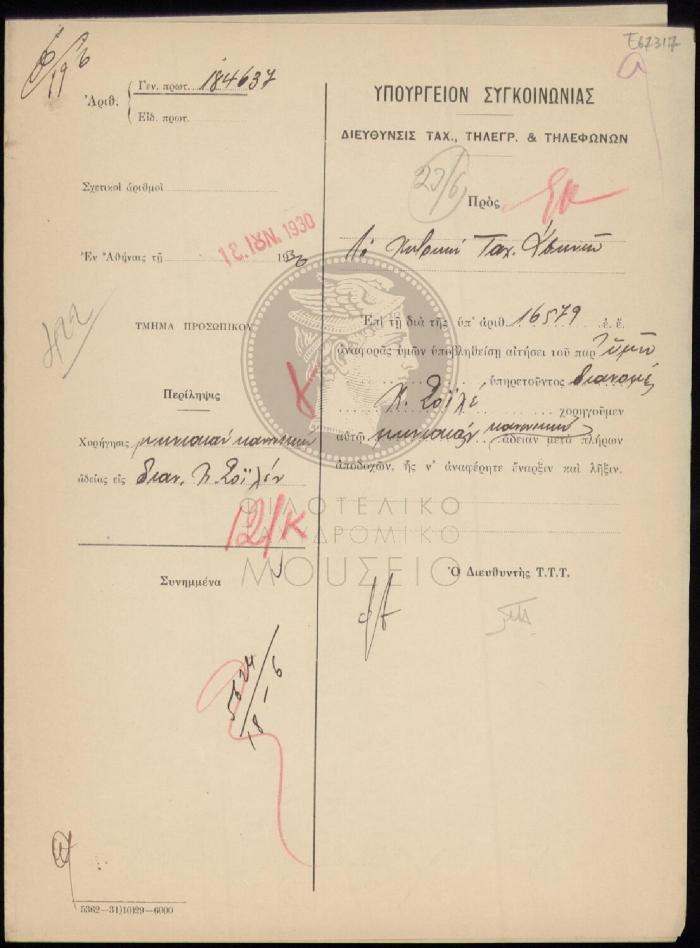 6/19 6
Ε67317
Ἀριθ.
Γεν. πρωτ. 184637
Εἰδ. πρωτ.
Σχετικοὶ ἀριθμοὶ
18. ΙΟΥΝ. 1930
Ἐν Ἀθήναις τῇ 1930
422
ΤΜΗΜΑ ΠΡΟΣΩΠΙΚΟΥ
Περίληψις
Χορήγησις μηνιαίαν κανονικὴν
ἀδείας εἰς διαν. Ν. Ζοϊλέν
12/Κ
Συνημμένα
5624
18-6
5362—31)10)29—6000
ΥΠΟΥΡΓΕΙΟΝ ΣΥΓΚΟΙΝΩΝΙΑΣ
ΔΙΕΥΘΥΝΣΙΣ ΤΑΧ., ΤΗΛΕΓΡ. & ΤΗΛΕΦΩΝΩΝ
23/6
Πρὸς
Τὸ Κεντρικὸν Ταχ. Ἀθηνῶν
Ἐπὶ τῇ διὰ τῆς ὑπ' ἀριθ. 16579 ἐ. ἔ.
ἀναφορᾶς ὑμῶν ὑποβληθείσῃ αἰτήσει τοῦ παρ' ὑμῖν
ὑπηρετοῦντος διανομέως
Ν. Ζοϊλέ χορηγοῦμεν
αὐτῷ μηνιαίαν κανονικὴν ἄδειαν μετὰ πλήρων
ἀποδοχῶν, ἧς ν' ἀναφέρητε ἔναρξιν καὶ λῆξιν.
ΦΙΛΟΤΕΛΙΚΟ
ΤΑΧΥΔΡΟΜΙΚΟ
ΜΟΥΣΕΙΟ
Ὁ Διευθυντὴς Τ.Τ.Τ.